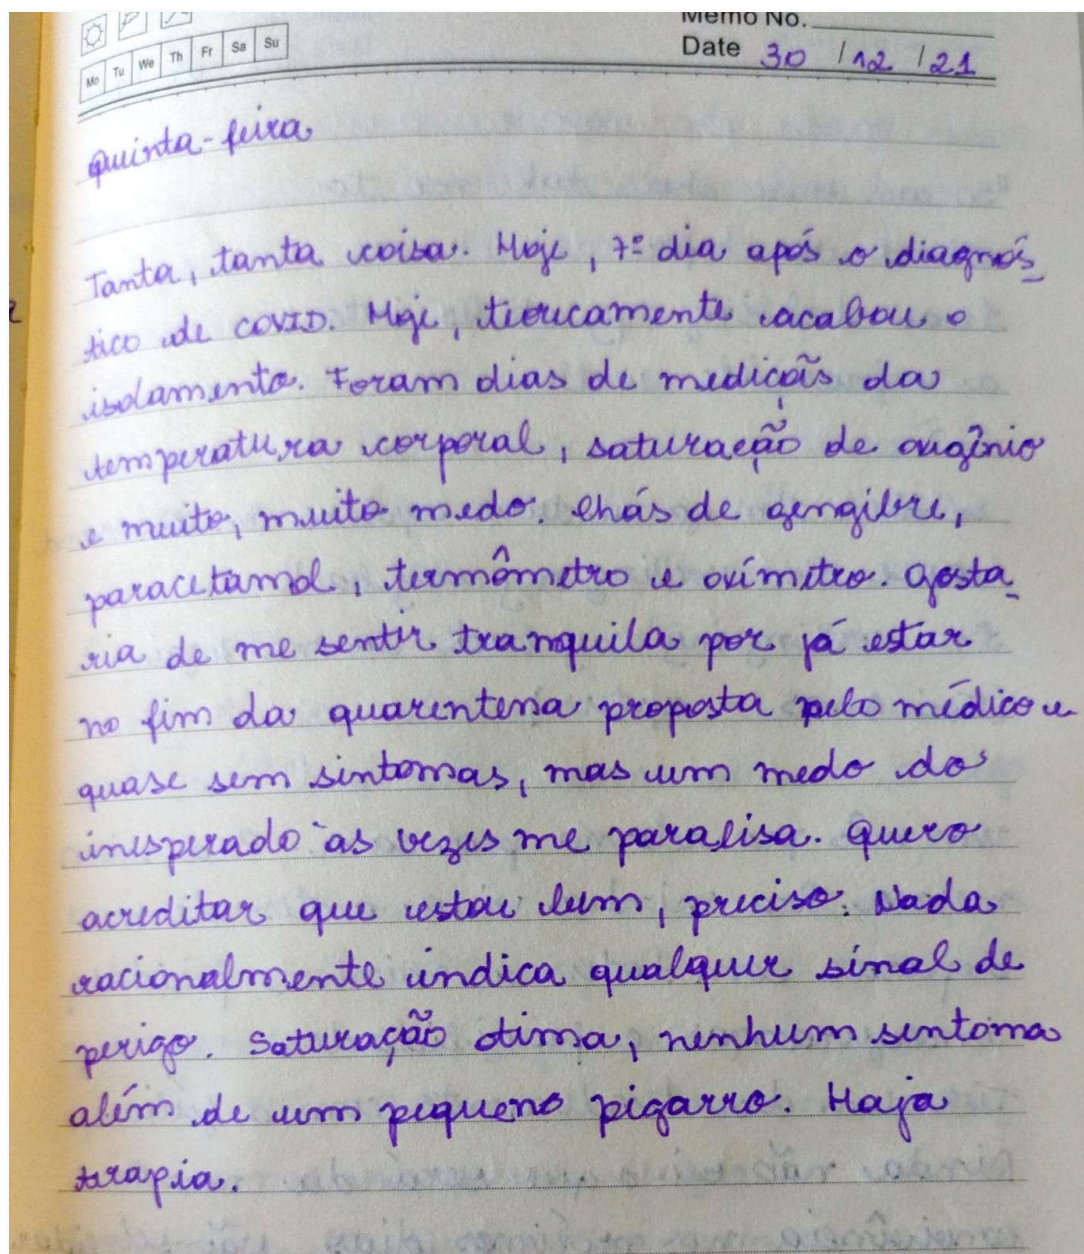 Memo No.
Mo Tu We Th Fr Sa Su
Date 30 / 12 / 21
Quinta-feira
Tanta, tanta coisa. Hoje, 7º dia após o diagnós-
tico de COVID. Hoje, teoricamente acabou o
isolamento. Foram dias de medições da
temperatura corporal, saturação de oxigênio
e muito, muito medo. Chás de gengibre,
paracetamol, termômetro e oxímetro. Gosta-
ria de me sentir tranquila por já estar
no fim da quarentena proposta pelo médico e
quase sem sintomas, mas um medo do
inesperado às vezes me paralisa. Quero
acreditar que estou bem, preciso. Nada
racionalmente indica qualquer sinal de
perigo. Saturação ótima, nenhum sintoma
além de um pequeno pigarro. Haja
terapia.